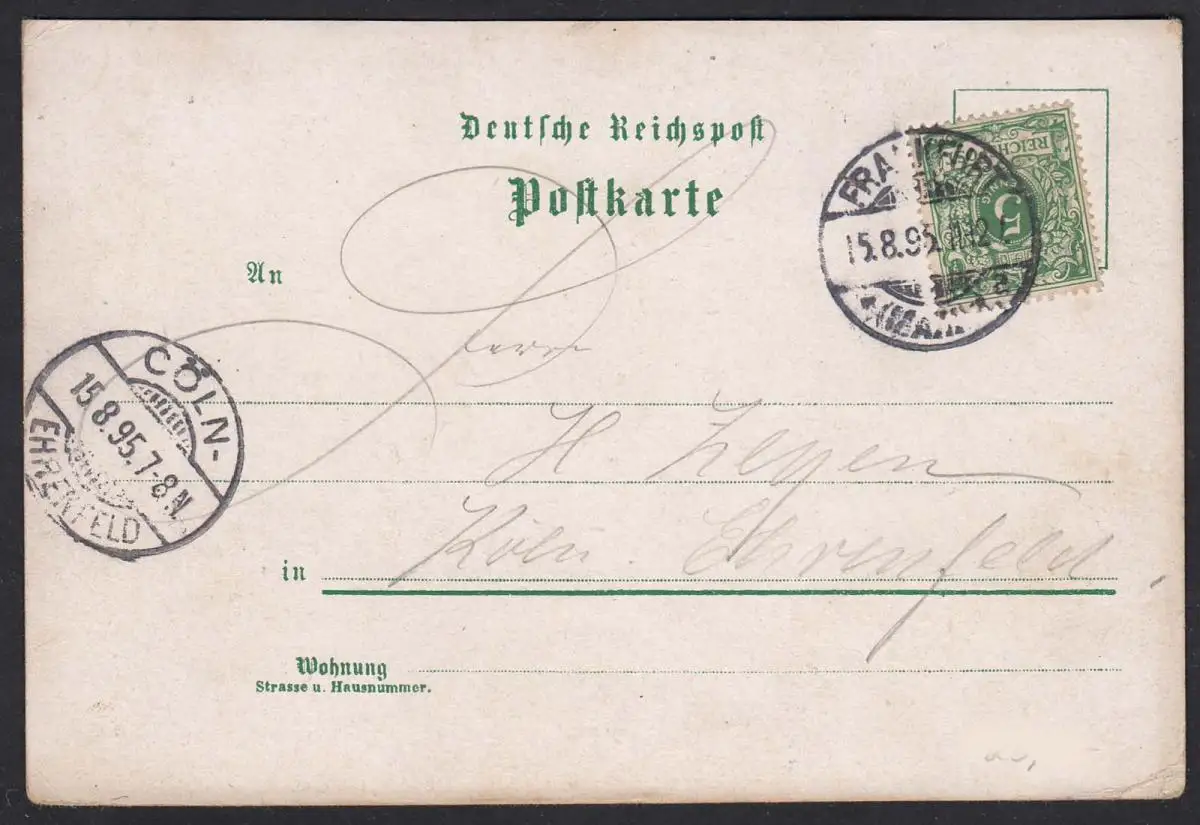 Deutsche Reichspost
Postkarte
An
Herrn
H. Zeyen
Köln Ehrenfeld.
in
Wohnung
Strasse u. Hausnummer.
FRANKFURT
15.8.95. 11-12
(MAIN)
REICHSPOST
5
CÖLN-
15.8.95.7-8N.
EHRENFELD